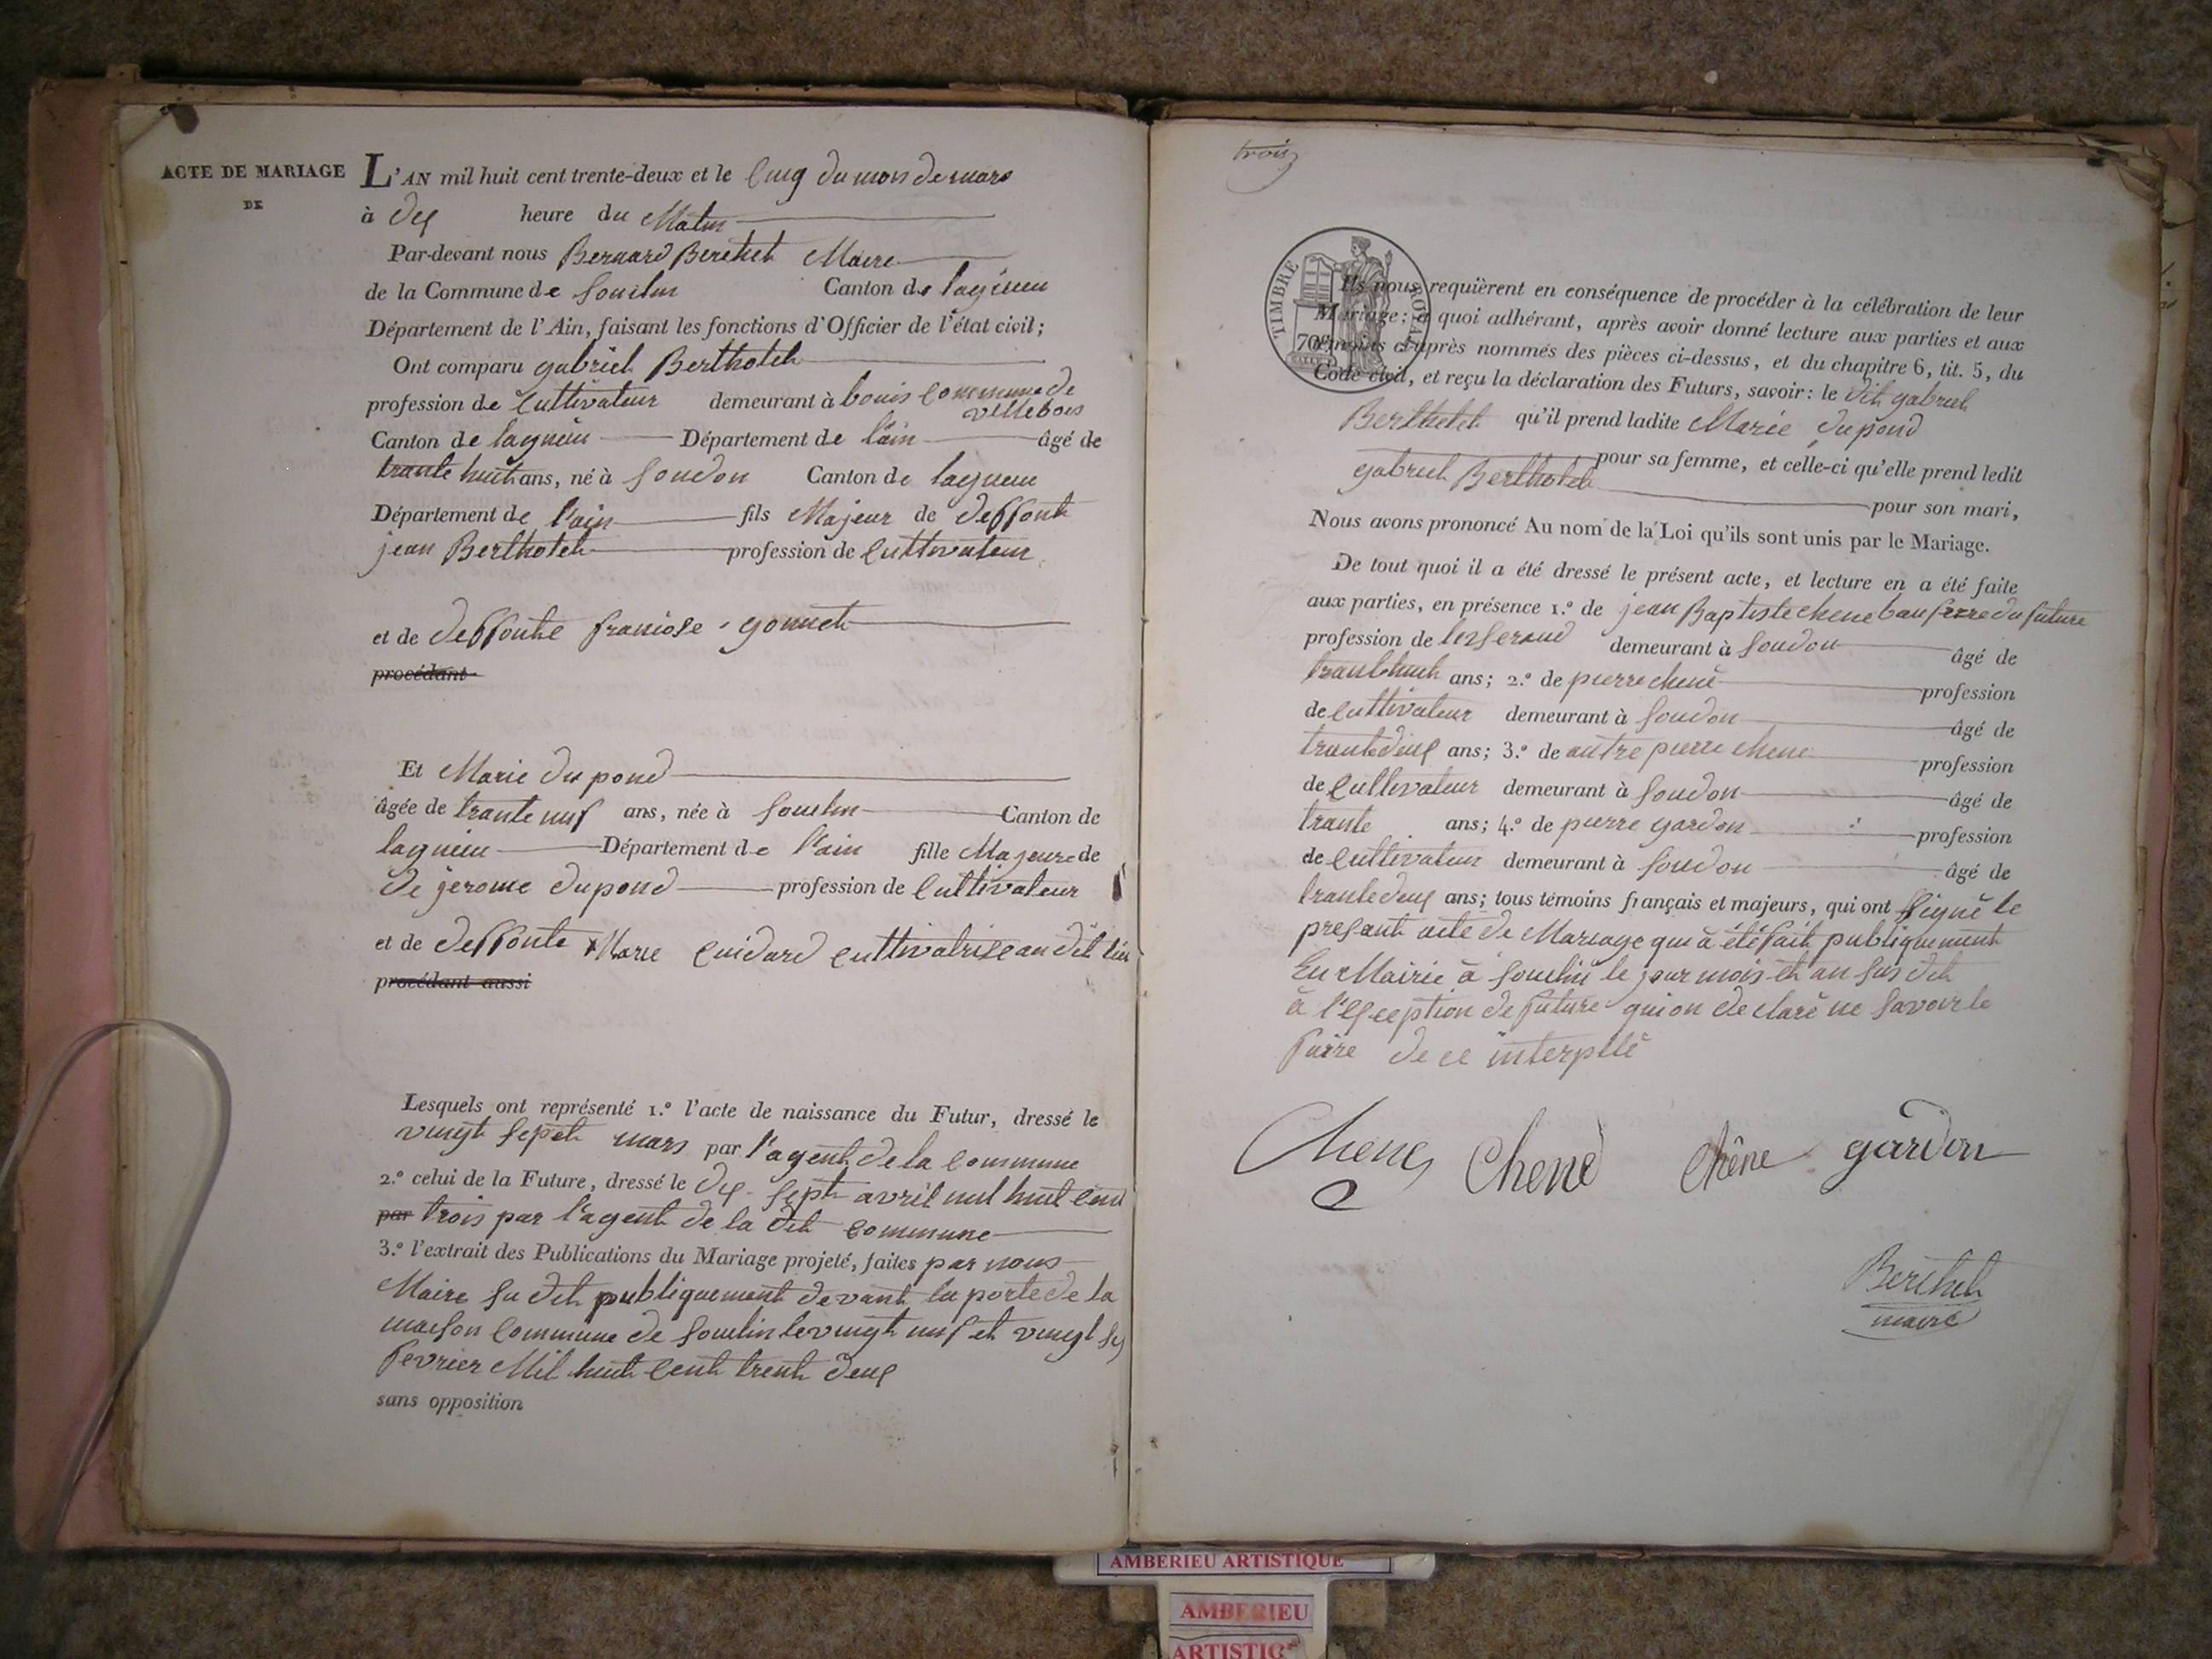 ACTE DE MARIAGE
DE
L'AN mil huit cent trente-deux et le Cinq du mois de mars
à dex heure du Matin
Par-devant nous Bernard Berthet Maire
de la Commune de Souclin Canton de lagnieu
Département de l'Ain, faisant les fonctions d'Officier de l'état civil;
Ont comparu gabriel Berthelet
profession de Cultivateur demeurant à bouis Commune de
villebois
Canton de lagnieu Département de l'ain âgé de
trante huit ans, né à Soudon Canton de lagnieu
Département de l'ain fils Majeur de deffont
jean Berthelet profession de Cultivateur
et de deffonte franiose gonnet
procédant
Et Marie dupond
âgée de trante nuf ans, née à Souclin Canton de
lagnieu Département de l'ain fille Majeure de
de jerome dupond profession de Cultivateur
et de deffonte Marie Cuidard Cultivatrise au dit lieu
procédant aussi
Lesquels ont représenté 1.° l'acte de naissance du Futur, dressé le
vingt sept mars par l'agent de la Commune
2.° celui de la Future, dressé le dex sept avril mil huit Cent
par trois par l'agent de la dit Commune
3.° l'extrait des Publications du Mariage projeté, faites par nous
Maire su dit publiquement devant la porte de la
maison Commune de Souclin le vingt nuf et vingt six
fevrier Mil huit Cent trent deux
sans opposition
trois
TIMBRE ROYAL
70
Ils nous requièrent en conséquence de procéder à la célébration de leur
Mariage; à quoi adhérant, après avoir donné lecture aux parties et aux
témoins ci-après nommés des pièces ci-dessus, et du chapitre 6, tit. 5, du
Code civil, et reçu la déclaration des Futurs, savoir: le dit gabriel
Berthelet qu'il prend ladite Marie dupond
pour sa femme, et celle-ci qu'elle prend ledit
gabriel Berthelet pour son mari,
Nous avons prononcé Au nom de la Loi qu'ils sont unis par le Mariage.
De tout quoi il a été dressé le présent acte, et lecture en a été faite
aux parties, en présence 1.° de jean Baptiste chene bau frere du future
profession de demeurant à Soudon âgé de
trant huit ans; 2.° de pierre chene profession
de Cultivateur demeurant à Soudon âgé de
trante deux ans; 3.° de autre pierre chene profession
de Cultivateur demeurant à Soudon âgé de
trante ans; 4.° de pierre gardon profession
de Cultivateur demeurant à Soudon âgé de
trante deux ans; tous témoins français et majeurs, qui ont signé le
presant acte de Mariage qui à été fait publiquement
En Mairie à Souclin le jour mois et an sus dit
à l'exception de future qui on declaré ne savoir le
faire de ce interpllé
Chene Chene Chêne gardon
Berthet
maire
AMBERIEU ARTISTIQUE
AMBERIEU
ARTISTIQ